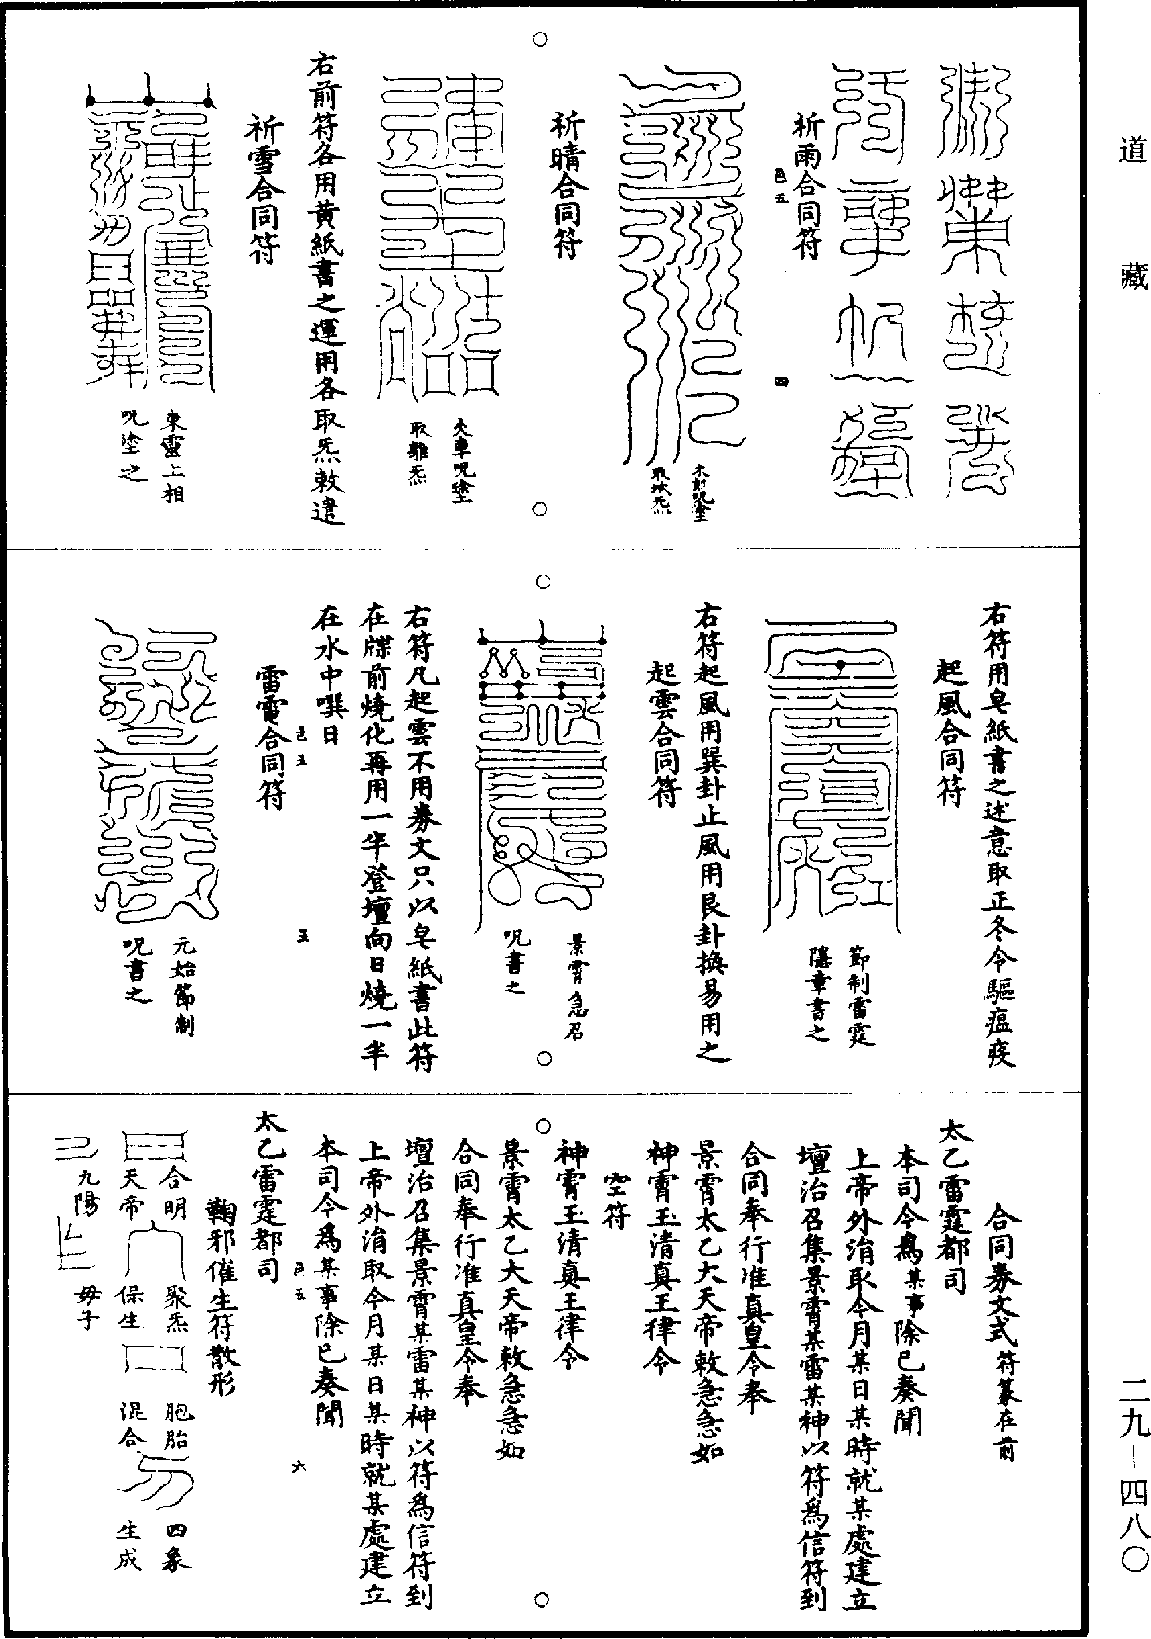 道藏
二九—四八〇
祈雨合同符
邑五
四
木郎呪塗
取坎炁
祈晴合同符
火車呪塗
取離炁
右前符各用黄紙書之運用各取炁敕遣
祈雪合同符
東靈上相
呪塗之
右符用皂紙書之述意取正冬令驅瘟疫
起風合同符
節制雷霆
隱章書之
右符起風用巽卦止風用艮卦換易用之
起雲合同符
景霄急召
呪書之
右符凡起雲不用券文只以皂紙書此符
在牒前燒化再用一半登壇向日燒一半
在水中噀日
邑五
五
雷電合同符
元始節制
呪書之
合同券文式符篆在前
太乙雷霆都司
本司今爲某事除已奏聞
上帝外涓取今月某日某時就某處建立
壇治召集景霄某雷某神以符爲信符到
合同奉行准真皇令奉
景霄太乙大天帝敕急急如
神霄玉清真王律令
空符
神霄玉清真王律令
景霄太乙大天帝敕急急如
合同奉行准真皇令奉
壇治召集景霄某雷某神以符爲信符到
上帝外涓取今月某日某時就某處建立
本司今爲某事除已奏聞
邑五
六
太乙雷霆都司
鞫邪催生符散形
合明
天帝
聚炁
保生
胞胎
混合
四象
生成
九陽
母子